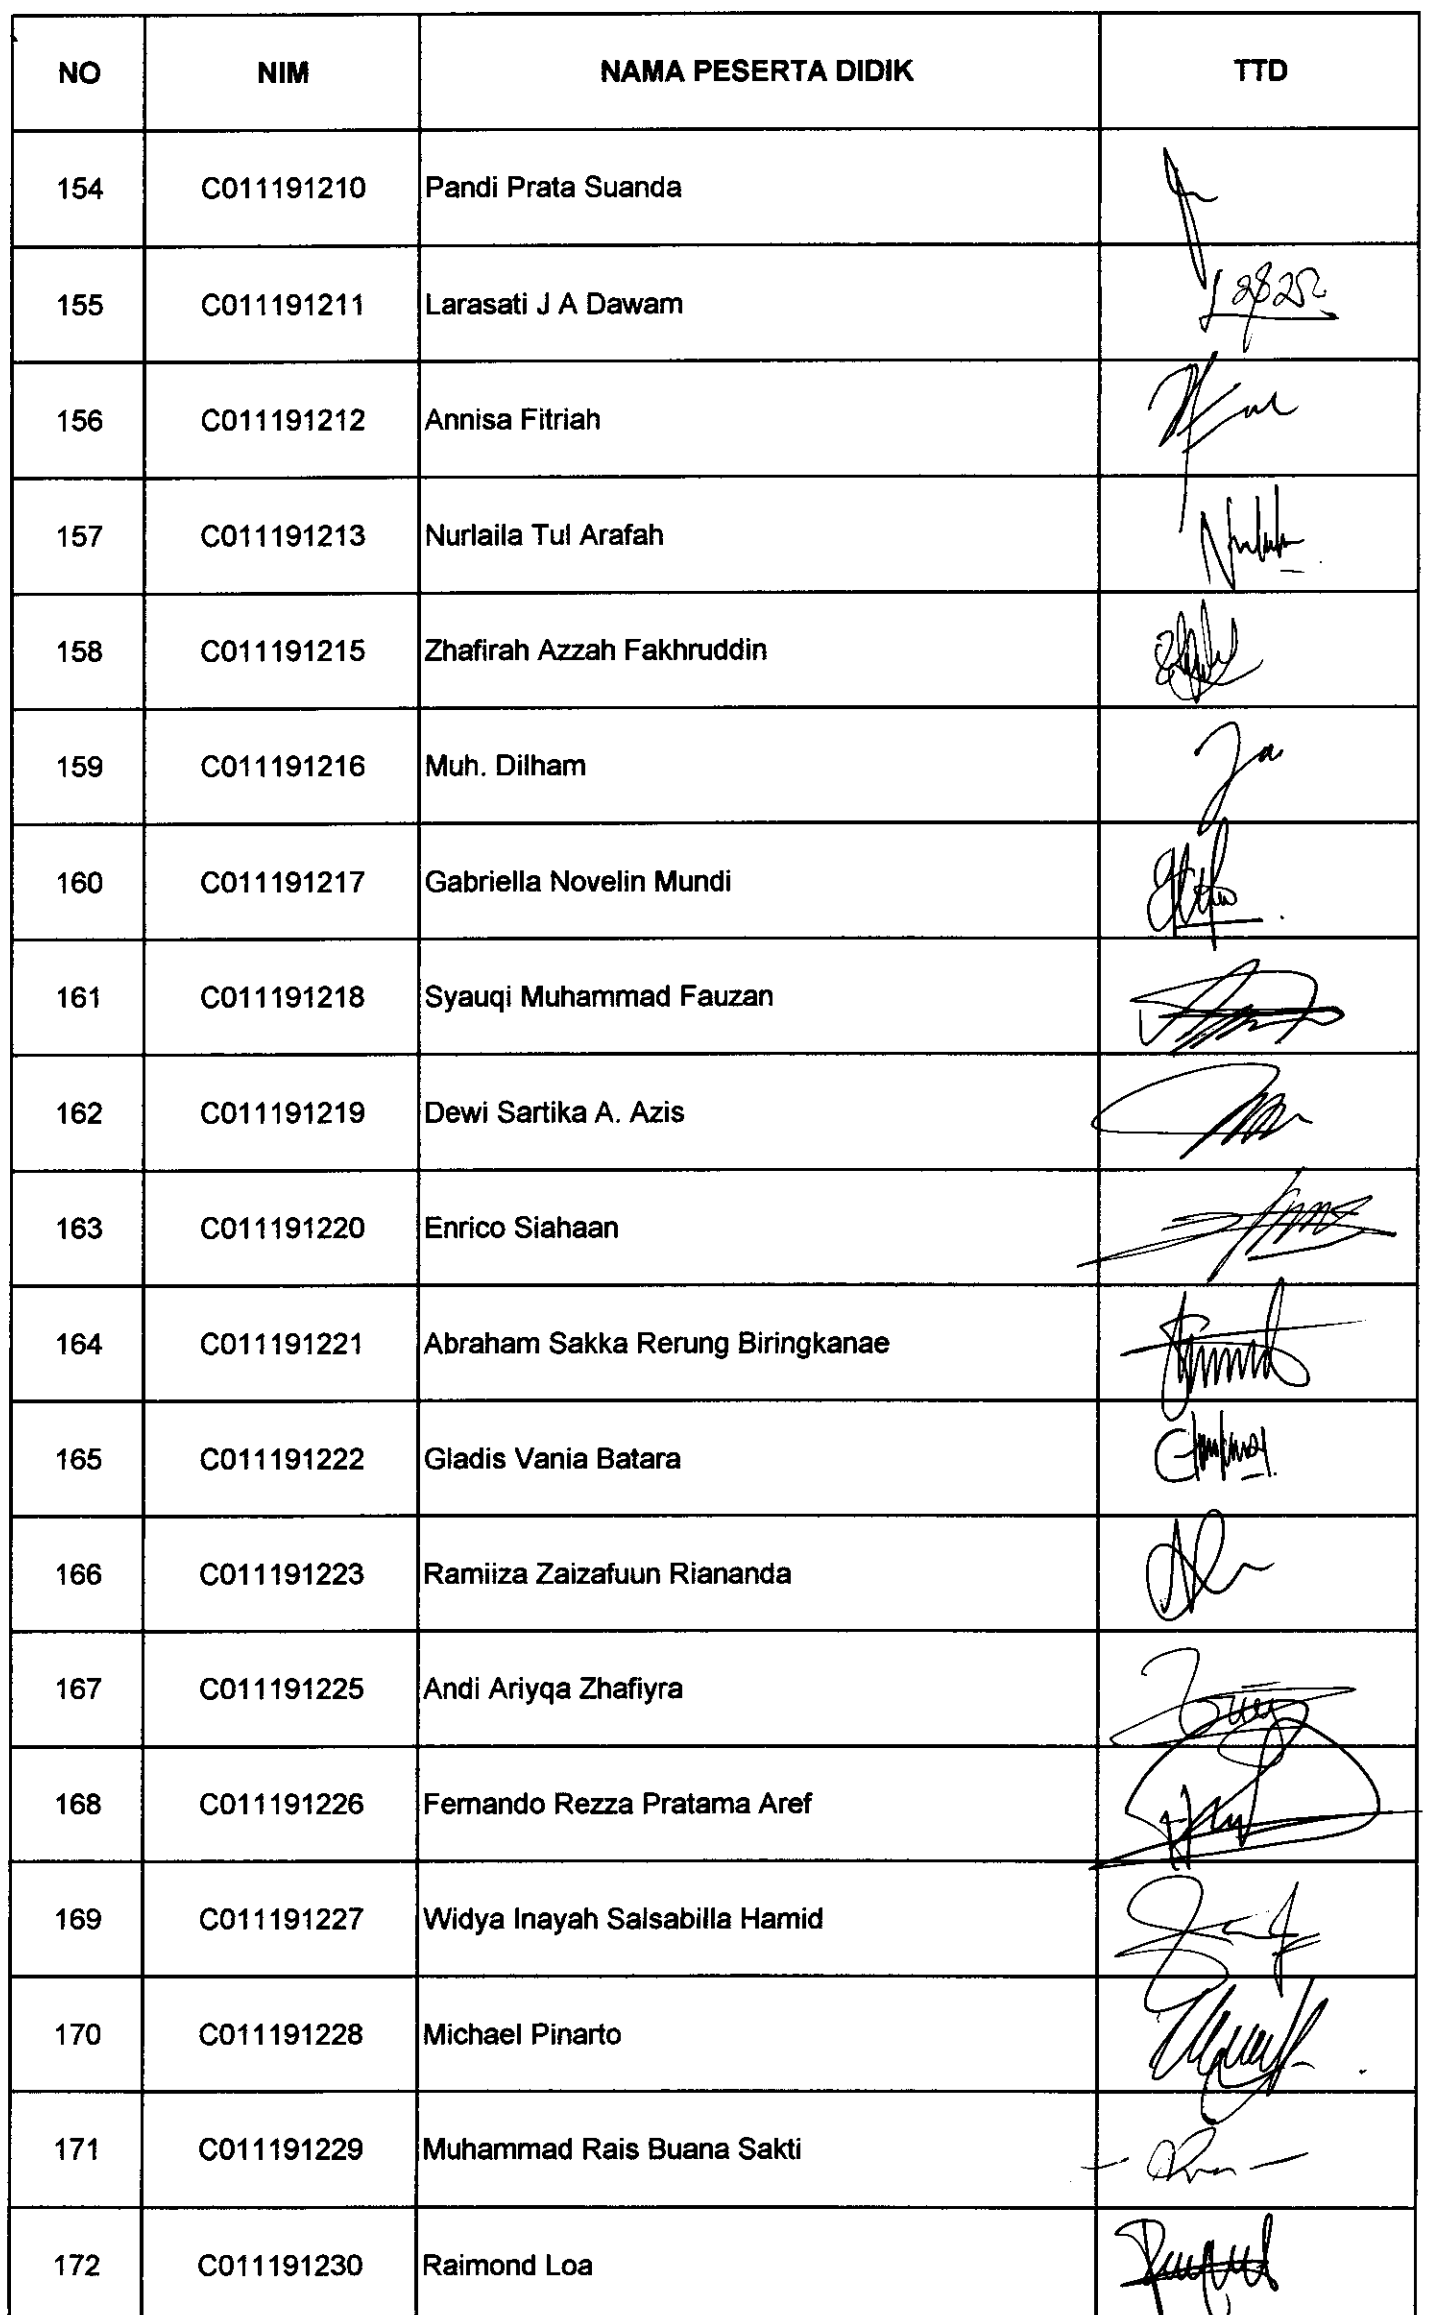 NO NIM NAMA PESERTA DIDIK TTD
154 C011191210 Pandi Prata Suanda
155 C011191211 Larasati J A Dawam
156 C011191212 Annisa Fitriah
157 C011191213 Nurlaila Tul Arafah
158 C011191215 Zhafirah Azzah Fakhruddin
159 C011191216 Muh. Dilham
160 C011191217 Gabriella Novelin Mundi
161 C011191218 Syauqi Muhammad Fauzan
162 C011191219 Dewi Sartika A. Azis
163 C011191220 Enrico Siahaan
164 C011191221 Abraham Sakka Rerung Biringkanae
165 C011191222 Gladis Vania Batara
166 C011191223 Ramiiza Zaizafuun Riananda
167 C011191225 Andi Ariyqa Zhafiyra
168 C011191226 Fernando Rezza Pratama Aref
169 C011191227 Widya Inayah Salsabilla Hamid
170 C011191228 Michael Pinarto
171 C011191229 Muhammad Rais Buana Sakti
172 C011191230 Raimond Loa